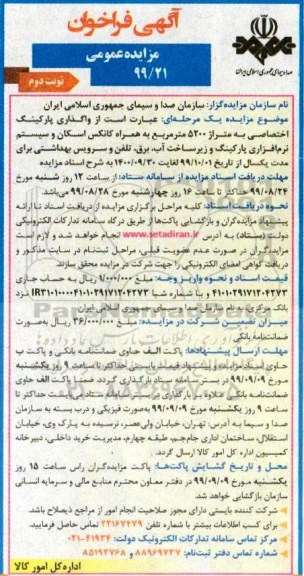 آگهی فراخوان
مزایده عمومی
۹۹/۲۱
نوبت دوم
صدا و سیمای جمهوری اسلامی ایران
نام سازمان مزایده‌گزار: سازمان صدا و سیمای جمهوری اسلامی ایران
موضوع مزایده یک مرحله‌ای: عبارت است از واگذاری پارکینگ
اختصاصی به متراژ ۵۲۰۰ مترمربع به همراه کانکس اسکان و سیستم
نرم‌افزاری پارکینگ و زیرساخت آب، برق، تلفن و سرویس بهداشتی برای
مدت یکسال از تاریخ ۹۹/۱۰/۰۱ لغایت ۱۴۰۰/۰۹/۳۰ به شرح اسناد مزایده
مهلت دریافت اسناد مزایده از سامانه ستاد: از ساعت ۱۲ روز شنبه مورخ
۹۹/۰۸/۲۴ حداکثر تا ساعت ۱۶ روز چهارشنبه مورخ ۹۹/۰۸/۲۸ می‌باشد.
نحوه دریافت اسناد: کلیه مراحل برگزاری مزایده از دریافت اسناد تا ارائه
پیشنهاد مزایده‌گران و بازگشایی پاکت‌ها از طریق درگاه سامانه تدارکات الکترونیکی
دولت (ستاد) به آدرس www.setadiran.ir انجام خواهد شد و لازم است
مزایده‌گران در صورت عدم عضویت قبلی، مراحل ثبت‌نام در سایت مذکور و
دریافت گواهی امضای الکترونیکی را جهت شرکت در مزایده محقق سازند.
قیمت اسناد و نحوه واریز وجه: مبلغ ۱/۰۰۰/۰۰۰ ریال به حساب جاری
بانک مرکزی به نام سازمان صدا و سیمای جمهوری اسلامی ایران
میزان تضمین شرکت در مزایده: مبلغ ۳۶/۰۰۰/۰۰۰ ریال به‌صورت
ضمانتنامه بانکی
مهلت ارسال پیشنهادها: پاکت الف حاوی ضمانتنامه بانکی و پاکت ب
مورخ ۹۹/۰۹/۰۹ بر روی سامانه ستاد بارگذاری گردد. ضمناً پاکت الف حاوی
ساعت ۹ روز یکشنبه مورخ ۹۹/۰۹/۰۹ به‌صورت فیزیکی و درب بسته به سازمان
صدا و سیما به آدرس: تهران، خیابان ولی‌عصر، نرسیده به پارک وی، خیابان
استقلال، ساختمان اداری جام‌جم، طبقه چهارم، مدیریت خرید داخلی، دبیرخانه
کمیسیون اداره کل امور کالا ارسال گردد.
محل و تاریخ گشایش پاکت‌ها: پاکت مزایده‌گران راس ساعت ۱۵ روز
یکشنبه مورخ ۹۹/۰۹/۰۹ در دفتر معاون محترم منابع مالی و سرمایه انسانی
سازمان بازگشایی خواهد شد.
شرکت کننده بایستی دارای مجوز صلاحیت انجام امور از مراجع ذیصلاح باشد.
برای کسب اطلاعات بیشتر با شماره تلفن ۲۲۱۶۷۲۷۹ تماس حاصل فرمایید.
مرکز تماس سامانه تدارکات الکترونیک دولت: ۴۱۹۳۴-۰۲۱
شماره تماس دفتر ثبت‌نام: ۸۸۹۶۹۷۳۷ و ۸۵۱۹۳۷۶۸
اداره کل امور کالا